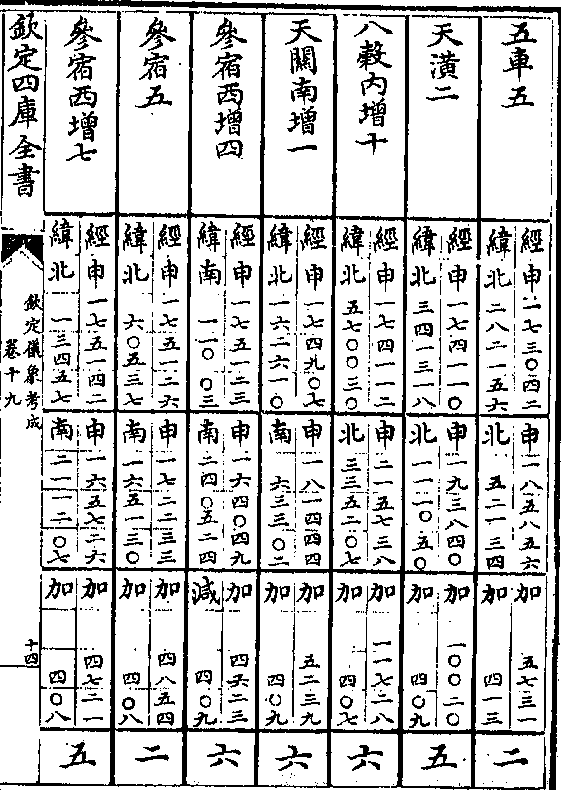 五車五
經申一七三〇四二 申一八五八五六 加五七三一
緯北二八二一五六 北五二一三四 加四一三
二
天潢二
經申一七四一一〇 申一九三八四〇 加一〇〇二〇
緯北三四一三一八 北一一一〇五〇 加四〇九
五
八榖内增十
經申一七四一一二 申二一五七三八 加一一七二八
緯北五七〇〇三〇 北三三五二〇七 加四〇七
六
天關南增一
經申一七四九〇七 申一八一四四四 加五二三九
緯北一六二六一〇 南六三三〇二 加四〇九
六
參宿西增四
經申一七五一二三 申一六四〇四九 加四六二三
緯南一一〇〇三 南二四〇五二四 減四〇九
六
參宿五
經申一七五一二六 申一七二二三三 加四八五四
緯北六〇五三七 南一六五一三〇 加四〇八
二
參宿西增七
經申一七五一四二 申一六五七二六 加四七二一
緯北一三四五七 南二一一二〇七 加四〇八
五
欽定四庫全書
欽定儀象考成
卷十九
十四